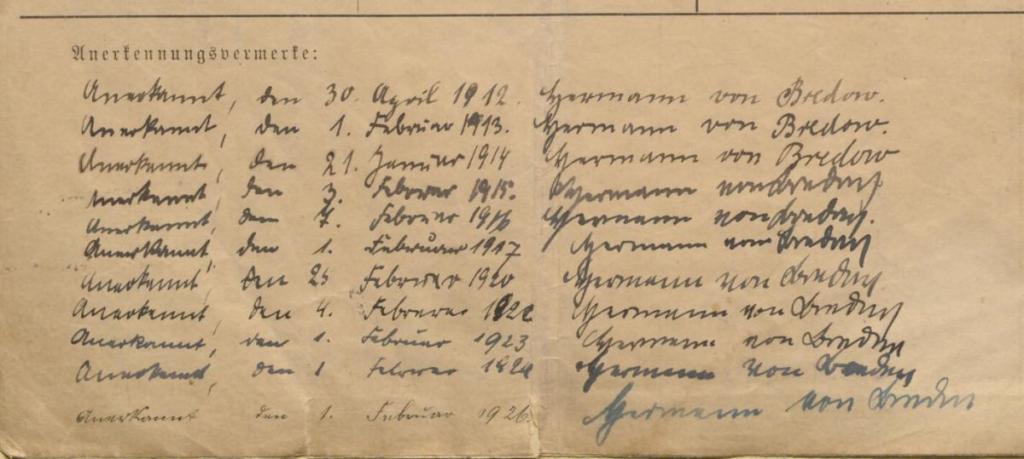 Anerkennungsvermerke:
Anerkannt, den 30. April 1912. Hermann von Bredow.
Anerkannt, den 1. Februar 1913. Hermann von Bredow.
Anerkannt, den 21. Januar 1914 Hermann von Bredow
Anerkannt, den 3. Februar 1915. Hermann von Bredow
Anerkannt, den 7. Februar 1916 Hermann von Bredow.
Anerkannt, den 1. Februar 1917 Hermann von Bredow
Anerkannt, den 25 Februar 1920 Hermann von Bredow
Anerkannt, den 4. Februar 1922 Hermann von Bredow
Anerkannt, den 1. Februar 1923 Hermann von Bredow
Anerkannt, den 1 Februar Hermann von Bredow
Anerkannt den 1. Februar 1926. Hermann von Bredow